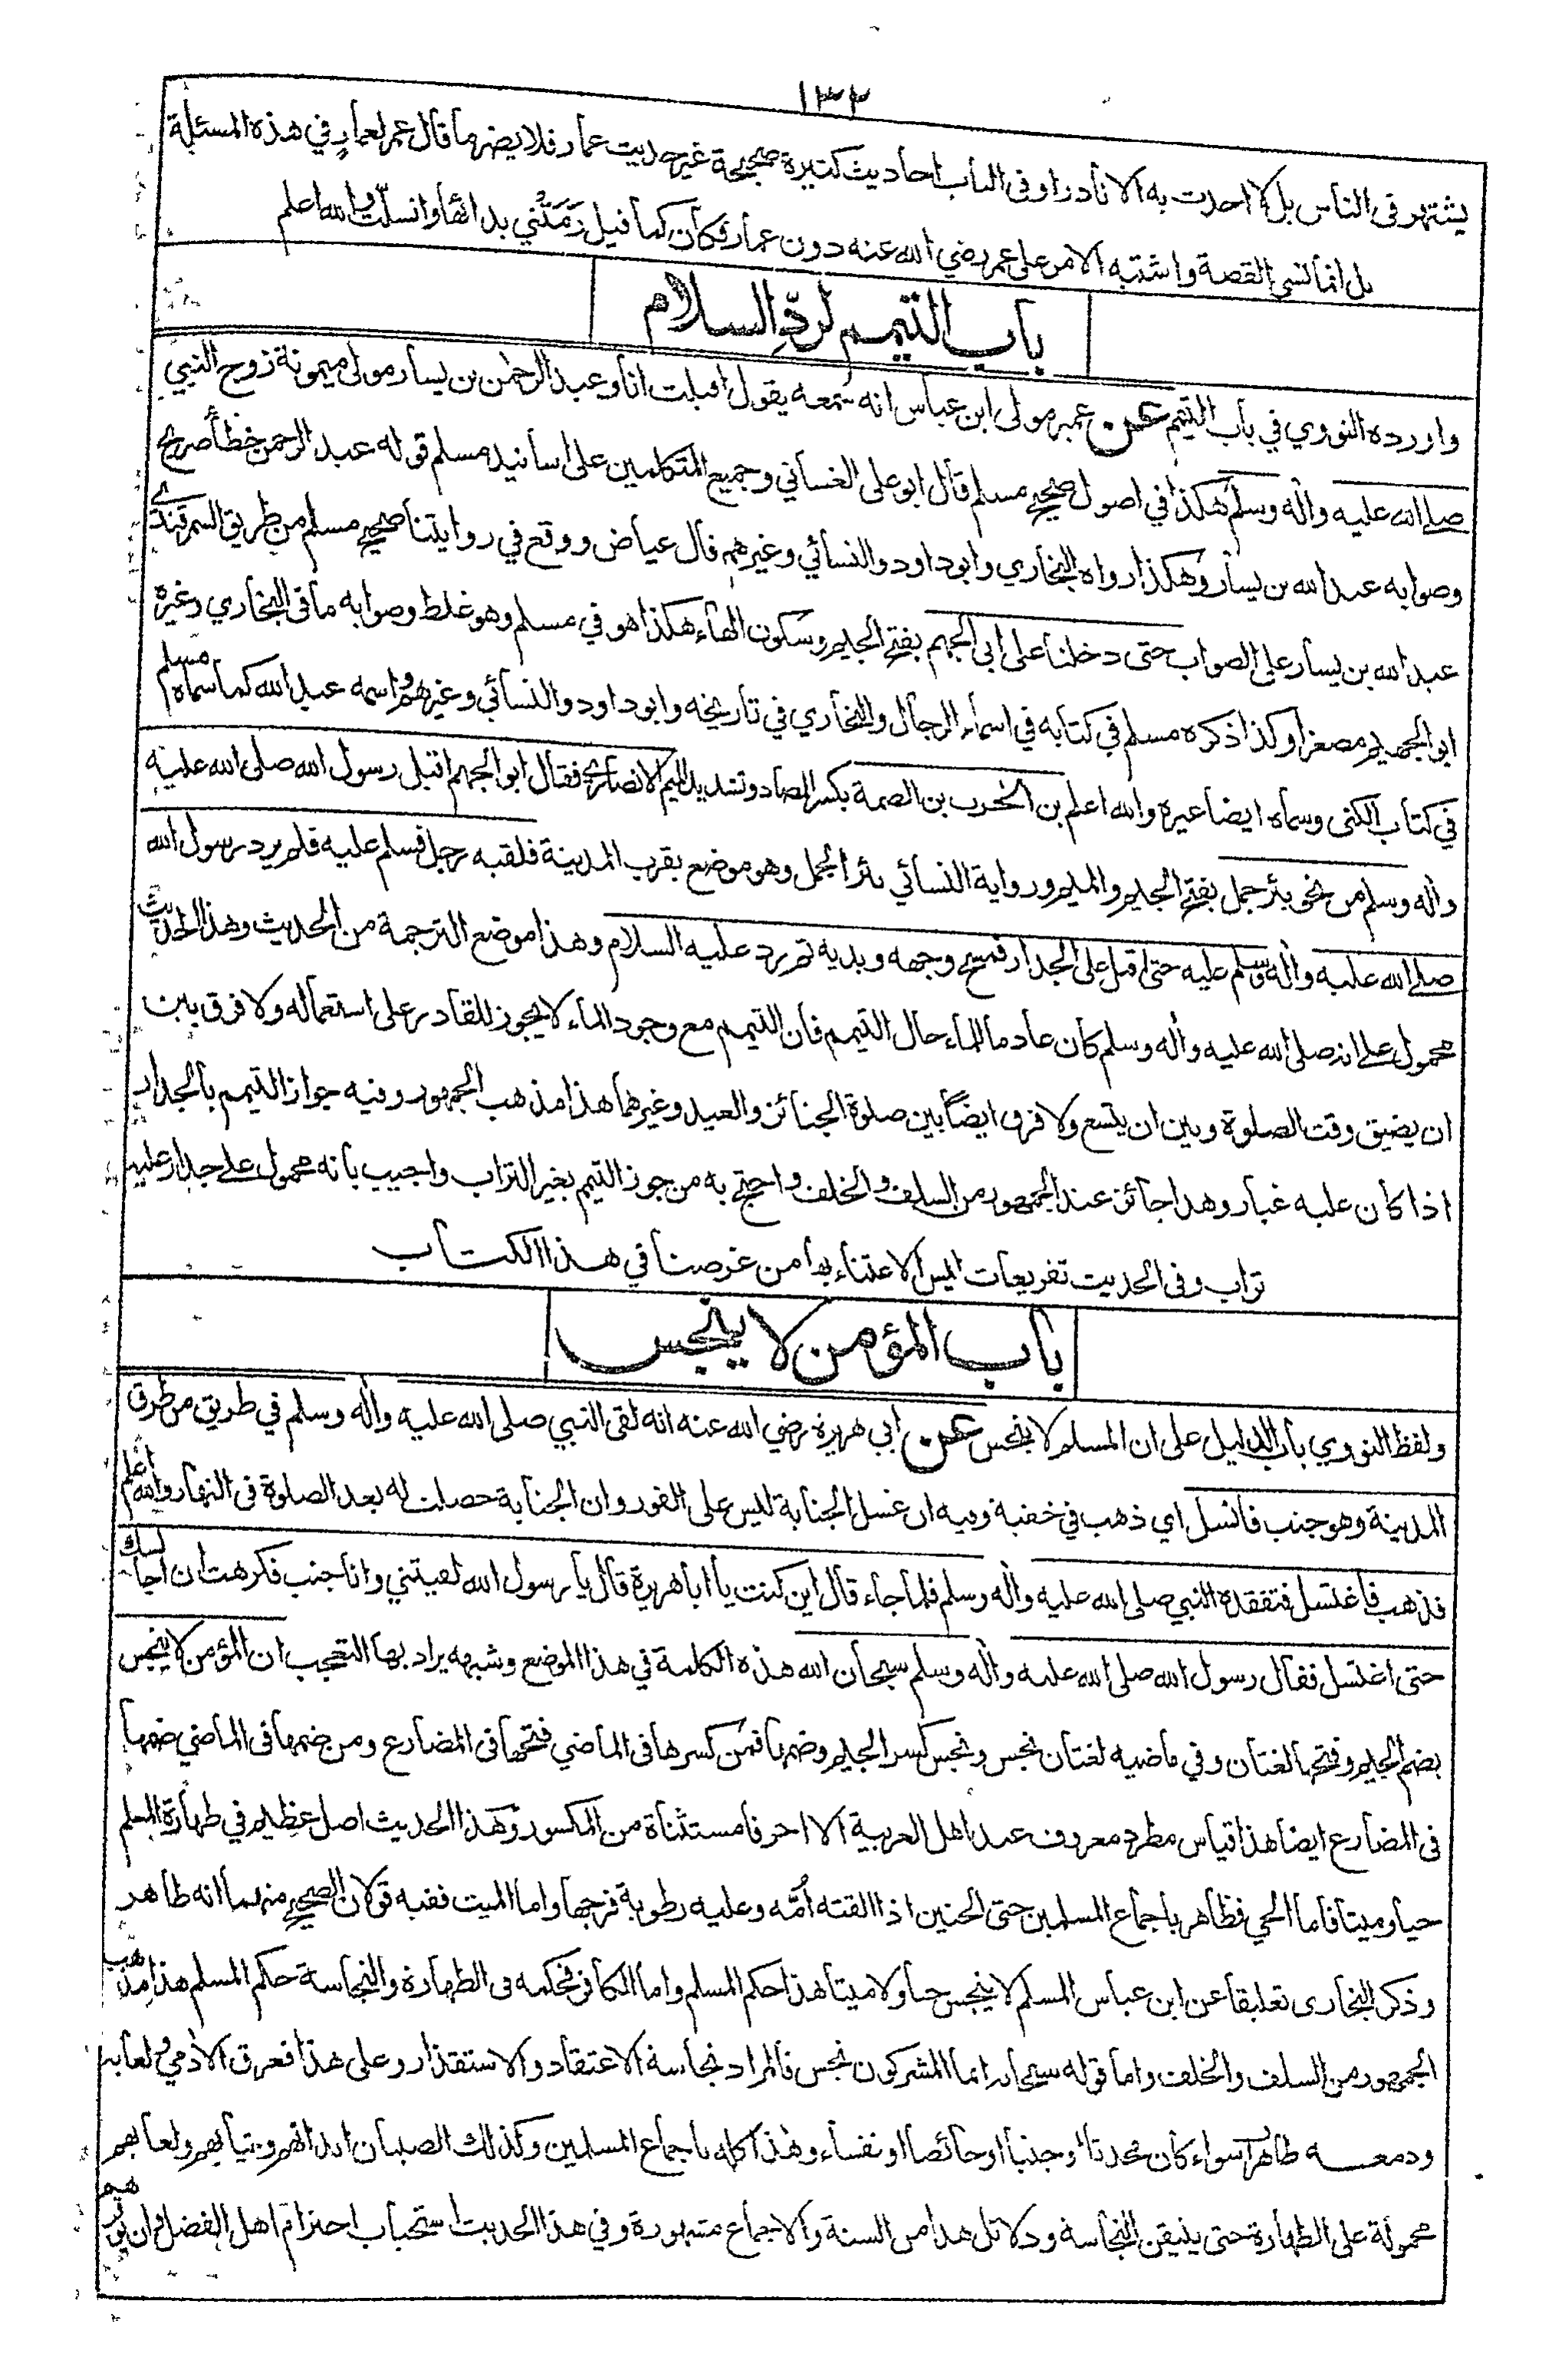 ١٣٢
يشتهر في الناس بل لا احدث به الا نادرا وفي الباب احاديث كثيرة صحيحة غير حديث عمار فلا يضر ما قال عمر لعمار في هذه المسئلة
بل انما نسي القصة واشتبه الامر على عمر رضي الله عنه دون عمار فكان كما قيل رَمَتْني بدائها وانسلّت والله اعلم
باب التيمم لردّ السلام
واورده النووي في باب التيمم عن عمير مولى ابن عباس انه سمعه يقول اقبلت انا وعبد الرحمن بن يسار مولى ميمونة زوج النبي
صلى الله عليه واٰله وسلم هكذا في اصول صحيح مسلم قال ابو علي الغساني وجميع المتكلمين على اسانيد مسلم قوله عبد الرحمن خطأ صريح
وصوابه عبد الله بن يسار وهكذا رواه البخاري وابو داود والنسائي وغيرهم قال عياض ووقع في روايتنا صحيح مسلم من طريق السمرقندي
عبد الله بن يسار على الصواب حتى دخلنا على ابي الجهم بفتح الجيم وسكون الهاء هكذا هو في مسلم وهو غلط وصوابه ما في البخاري وغيره
ابو الجهيم مصغرا وكذا ذكره مسلم في كتابه في اسماء الرجال والبخاري في تاريخه وابو داود والنسائي وغيرهم واسمه عبد الله كما سماه مسلم
في كتاب الكنى وسماه ايضا غيره والله اعلم بن الحٰرث بن الصمة بكسر الصاد وتشديد الميم الانصاري فقال ابو الجهم اقبل رسول الله صلى الله عليه
واٰله وسلم من نحو بئر جمل بفتح الجيم والميم ورواية النسائي بئر الجمل وهو موضع بقرب المدينة فلقيه رجل فسلم عليه فلم يرد رسول الله
صلى الله عليه واٰله وسلم عليه حتى اقبل على الجدار فمسح وجهه ويديه ثم رد عليه السلام وهذا موضع الترجمة من الحديث وهذا الحديث
محمول على انه صلى الله عليه واٰله وسلم كان عادما للماء حال التيمم فان التيمم مع وجود الماء لا يجوز للقادر على استعماله ولا فرق بين
ان يضيق وقت الصلوة وبين ان يتسع ولا فرق ايضاً بين صلوة الجنائز والعيد وغيرهما هذا مذهب الجمهور وفيه جواز التيمم بالجدار
اذا كان عليه غبار وهذا جائز عند الجمهور من السلف والخلف واحتج به من جوز التيمم بغير التراب واجيب بأنه محمول على جدار عليه
تراب وفي الحديث تفريعات ليس الاعتناء بها من غرضنا في هذا الكتاب
باب المؤمن لا ينجس
ولفظ النووي باب الدليل على ان المسلم لا ينجس عن ابي هريرة رضي الله عنه انه لقى النبي صلى الله عليه واٰله وسلم في طريق من طرق
المدينة وهو جنب فانسل اي ذهب في خفية وفيه ان غسل الجنابة ليس على الفور وان الجنابة حصلت له بعد الصلوة في النهار والله اعلم
فذهب فاغتسل فتفقده النبي صلى الله عليه واٰله وسلم فلما جاء قال اين كنت يا ابا هريرة قال يا رسول الله لقيتني وانا جنب فكرهت ان اجالسك
حتى اغتسل فقال رسول الله صلى الله عليه واٰله وسلم سبحان الله هذه الكلمة في هذا الموضع وشبهه يراد بها التعجب ان المؤمن لا ينجس
بضم الجيم وفتحها لغتان وفي ماضيه لغتان نجس ونجس بكسر الجيم وضمها فمن كسرها في الماضي فتحها في المضارع ومن ضمها في الماضي ضمها
في المضارع ايضا هذا قياس مطرد معروف عند اهل العربية الا احرفا مستثناة من المكسور وهذا الحديث اصل عظيم في طهارة المسلم
حيا وميتا فاما الحي فطاهر باجماع المسلمين حتى الجنين اذا القته اُمّه وعليه رطوبة فرجها واما الميت ففيه قولان الصحيح منهما انه طاهر
وذكر البخاري تعليقا عن ابن عباس المسلم لا ينجس حيا ولا ميتا هذا حكم المسلم واما الكافر فحكمه في الطهارة والنجاسة حكم المسلم هذا مذهب
الجمهور من السلف والخلف واما قوله سبحانه انما المشركون نجس فالمراد نجاسة الاعتقاد والاستقذار وعلى هذا فعرق الاٰدمي ولعابه
ودمعه طاهرٌ سواء كان محدثا او جنبا او حائضا او نفساء وهذا كله باجماع المسلمين وكذلك الصبيان ابدانهم وثيابهم ولعابهم
محمولة على الطهارة حتى يتيقن النجاسة ودلائل هذا من السنة والاجماع مشهورة وفي هذا الحديث استحباب احترام اهل الفضل وان يوقرهم